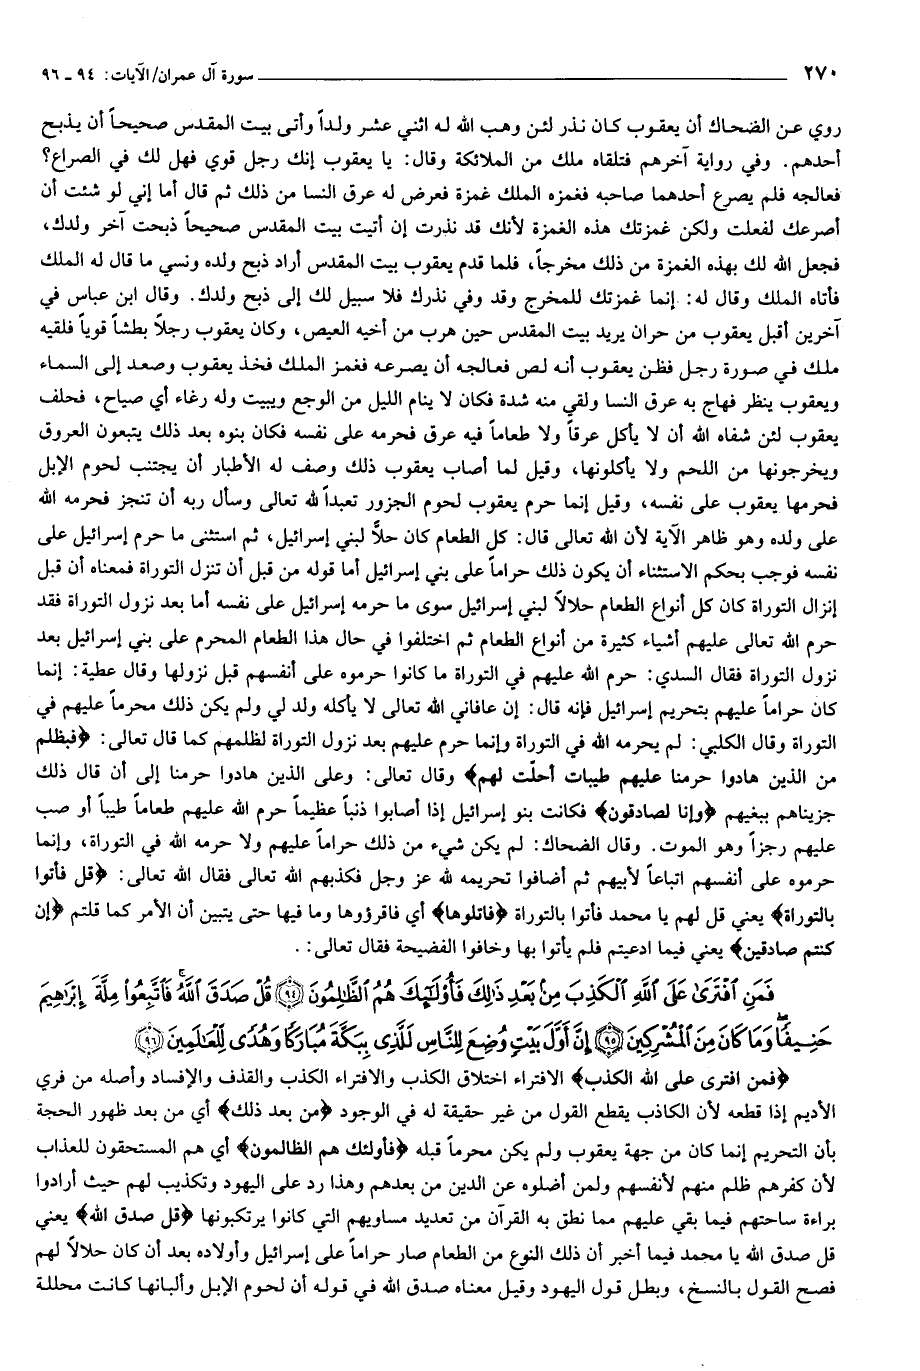 ٢٧٠ سورة آل عمران/ الآيات: ٩٤ ـ ٩٦
روي عن الضحاك أن يعقوب كان نذر لئن وهب الله له اثني عشر ولداً وأتى بيت المقدس صحيحاً أن يذبح
أحدهم. وفي رواية آخرهم فتلقاه ملك من الملائكة وقال: يا يعقوب إنك رجل قوي فهل لك في الصراع؟
فعالجه فلم يصرع أحدهما صاحبه فغمزه الملك غمزة فعرض له عرق النسا من ذلك ثم قال أما إني لو شئت أن
أصرعك لفعلت ولكن غمزتك هذه الغمزة لأنك قد نذرت إن أتيت بيت المقدس صحيحاً ذبحت آخر ولدك،
فجعل الله لك بهذه الغمزة من ذلك مخرجاً، فلما قدم يعقوب بيت المقدس أراد ذبح ولده ونسي ما قال له الملك
فأتاه الملك وقال له: إنما غمزتك للمخرج وقد وفي نذرك فلا سبيل لك إلى ذبح ولدك. وقال ابن عباس في
آخرين أقبل يعقوب من حران يريد بيت المقدس حين هرب من أخيه العيص، وكان يعقوب رجلاً بطشاً قوياً فلقيه
ملك في صورة رجل فظن يعقوب أنه لص فعالجه أن يصرعه فغمز الملك فخذ يعقوب وصعد إلى السماء
ويعقوب ينظر فهاج به عرق النسا ولقي منه شدة فكان لا ينام الليل من الوجع ويبيت وله رغاء أي صياح، فحلف
يعقوب لئن شفاه الله أن لا يأكل عرقاً ولا طعاماً فيه عرق فحرمه على نفسه فكان بنوه بعد ذلك يتبعون العروق
ويخرجونها من اللحم ولا يأكلونها، وقيل لما أصاب يعقوب ذلك وصف له الأطبار أن يجتنب لحوم الإبل
فحرمها يعقوب على نفسه، وقيل إنما حرم يعقوب لحوم الجزور تعبداً لله تعالى وسأل ربه أن تنجز فحرمه الله
على ولده وهو ظاهر الآية لأن الله تعالى قال: كل الطعام كان حلاًّ لبني إسرائيل، ثم استثنى ما حرم إسرائيل على
نفسه فوجب بحكم الاستثناء أن يكون ذلك حراماً على بني إسرائيل أما قوله من قبل أن تنزل التوراة فمعناه أن قبل
إنزال التوراة كان كل أنواع الطعام حلالاً لبني إسرائيل سوى ما حرمه إسرائيل على نفسه أما بعد نزول التوراة فقد
حرم الله تعالى عليهم أشياء كثيرة من أنواع الطعام ثم اختلفوا في حال هذا الطعام المحرم على بني إسرائيل بعد
نزول التوراة فقال السدي: حرم الله عليهم في التوراة ما كانوا حرموه على أنفسهم قبل نزولها وقال عطية: إنما
كان حراماً عليهم بتحريم إسرائيل فإنه قال: إن عافاني الله تعالى لا يأكله ولد لي ولم يكن ذلك محرماً عليهم في
التوراة وقال الكلبي: لم يحرمه الله في التوراة وإنما حرم عليهم بعد نزول التوراة لظلمهم كما قال تعالى: ﴿فبظلم
من الذين هادوا حرمنا عليهم طيبات أحلّت لهم﴾ وقال تعالى: وعلى الذين هادوا حرمنا إلى أن قال ذلك
جزيناهم ببغيهم ﴿وإنا لصادقون﴾ فكانت بنو إسرائيل إذا أصابوا ذنباً عظيماً حرم الله عليهم طعاماً طيباً أو صب
عليهم رجزاً وهو الموت. وقال الضحاك: لم يكن شيء من ذلك حراماً عليهم ولا حرمه الله في التوراة، وإنما
حرموه على أنفسهم اتباعاً لأبيهم ثم أضافوا تحريمه لله عز وجل فكذبهم الله تعالى فقال الله تعالى: ﴿قل فأتوا
بالتوراة﴾ يعني قل لهم يا محمد فأتوا بالتوراة ﴿فاتلوها﴾ أي فاقرؤوها وما فيها حتى يتبين أن الأمر كما قلتم ﴿إن
كنتم صادقين﴾ يعني فيما ادعيتم فلم يأتوا بها وخافوا الفضيحة فقال تعالى: .
فَمَنِ ٱفْتَرَىٰ عَلَى ٱللَّهِ ٱلْكَذِبَ مِنۢ بَعْدِ ذَٰلِكَ فَأُو۟لَٰٓئِكَ هُمُ ٱلظَّٰلِمُونَ ﴿٩٤﴾ قُلْ صَدَقَ ٱللَّهُ ۗ فَٱتَّبِعُوا۟ مِلَّةَ إِبْرَٰهِيمَ
حَنِيفًا ۖ وَمَا كَانَ مِنَ ٱلْمُشْرِكِينَ ﴿٩٥﴾ إِنَّ أَوَّلَ بَيْتٍ وُضِعَ لِلنَّاسِ لَلَّذِى بِبَكَّةَ مُبَارَكًا وَهُدًى لِّلْعَٰلَمِينَ ﴿٩٦﴾
﴿فمن افترى على الله الكذب﴾ الافتراء اختلاق الكذب والافتراء الكذب والقذف والإفساد وأصله من فري
الأديم إذا قطعه لأن الكاذب يقطع القول من غير حقيقة له في الوجود ﴿من بعد ذلك﴾ أي من بعد ظهور الحجة
بأن التحريم إنما كان من جهة يعقوب ولم يكن محرماً قبله ﴿فأولئك هم الظالمون﴾ أي هم المستحقون للعذاب
لأن كفرهم ظلم منهم لأنفسهم ولمن أضلوه عن الدين من بعدهم وهذا رد على اليهود وتكذيب لهم حيث أرادوا
براءة ساحتهم فيما بقي عليهم مما نطق به القرآن من تعديد مساويهم التي كانوا يرتكبونها ﴿قل صدق الله﴾ يعني
قل صدق الله يا محمد فيما أخبر أن ذلك النوع من الطعام صار حراماً على إسرائيل وأولاده بعد أن كان حلالاً لهم
فصح القول بالنسخ، وبطل قول اليهود وقيل معناه صدق الله في قوله أن لحوم الإبل وألبانها كانت محللة